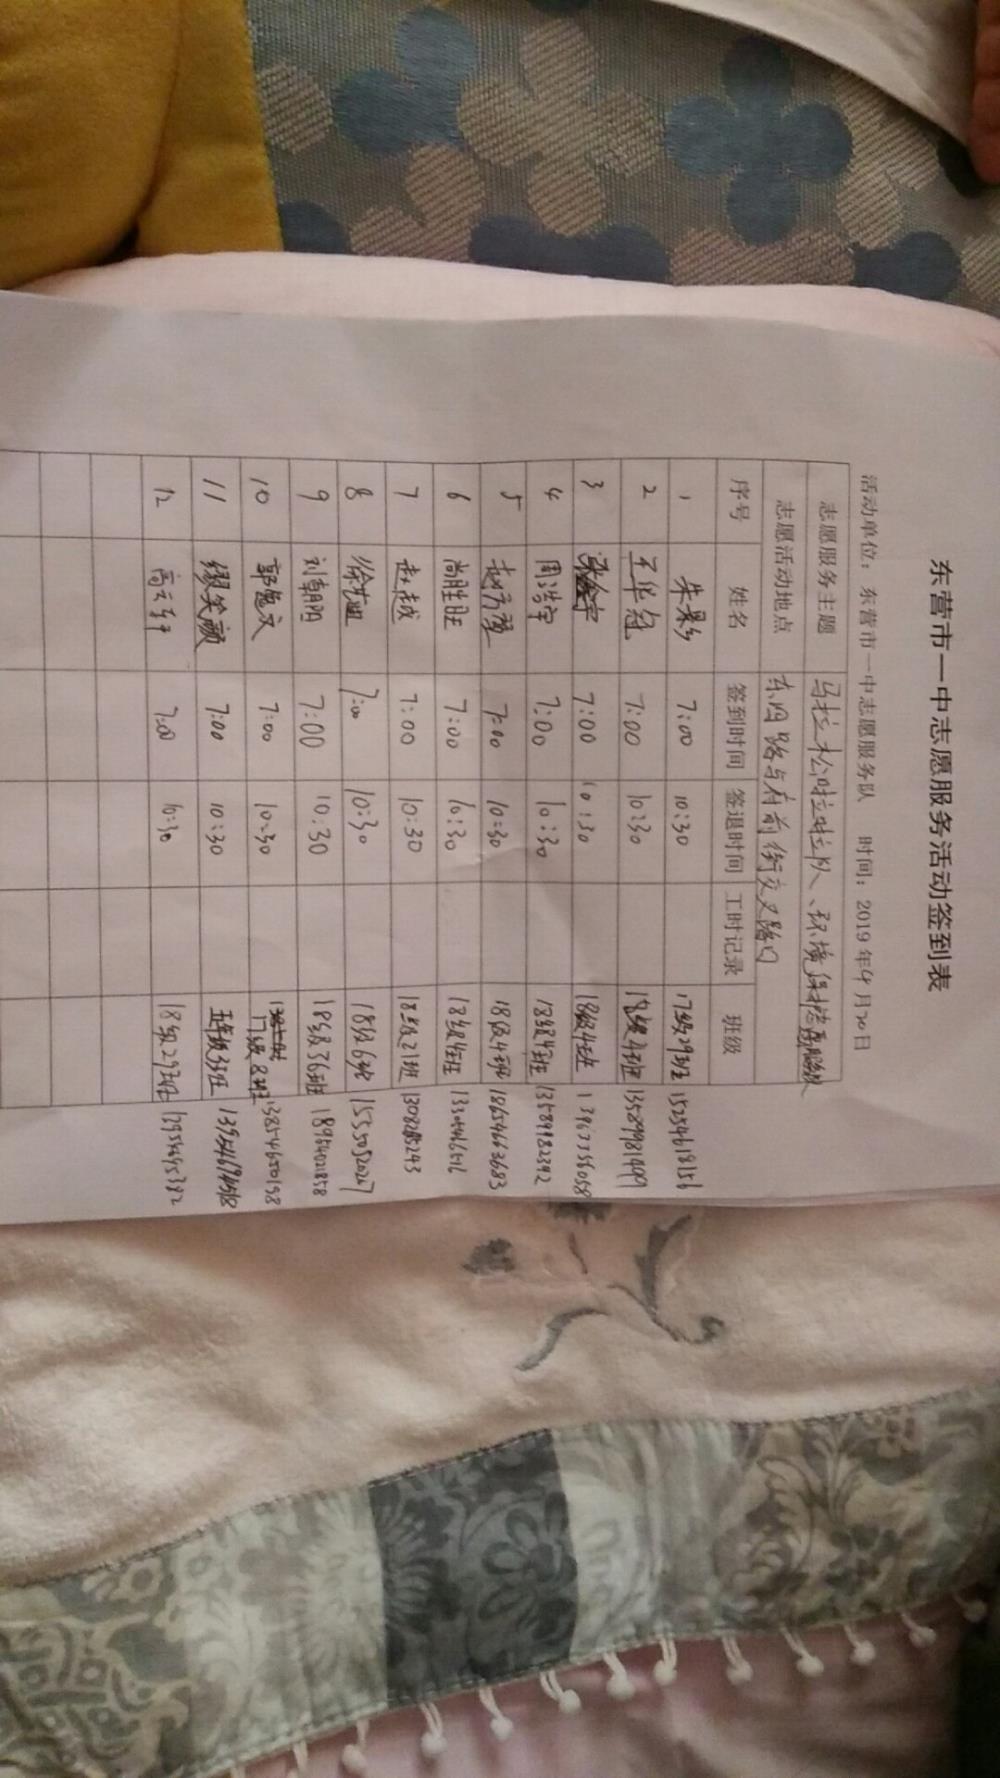 东营市一中志愿服务活动签到表
活动单位：东营市一中志愿服务队 时间：2019年4月20日
志愿服务主题 马拉松啦啦队、环境保护
志愿活动地点 东四路与府前街交叉路口
序号 姓名 签到时间 签退时间 工时记录 班级
1 朱景彡 7:00 10:30 17级29班 15254619156
2 王华冠 7:00 10:30 18级4班 13589981409
3 7:00 10:30 18级4班
4 周浩宇 7:00 10:30 18级4班 13589982392
5 赵方 7:00 10:30 18级4班 18654663683
6 尚胜旺 7:00 10:30 18级4班
7 赵越 7:00 10:30 18级21班
8 徐艺 7:00 10:30 18级6班 15550520267
9 刘朝阳 7:00 10:30 18级36班 18954021858
10 郭逸文 7:00 10:30 17级8班 13854650158
11 缪笑颜 7:00 10:30 五年级3班
12 高云 7:00 10:30 18级29班